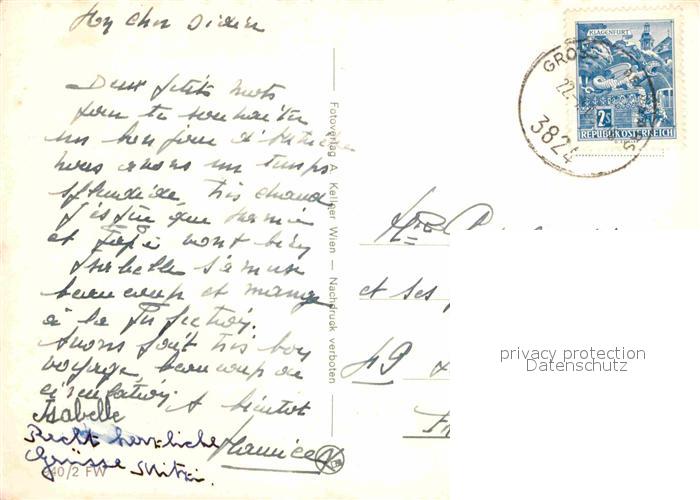 My cher Didier
Deux petits mots
pour te souhaiter
un bon jour
nous avons un temps
splendide, très chaud
J'espère que Mamie
et Papi vont bien
Isabelle s'amuse
beaucoup et mange
à la perfection.
Avons fait très bon
voyage, beaucoup de
circulation.
A bientôt
Isabelle
Recht herzliche
Grüsse Mitzi.
440/2 FW
Fotoverlag A. Kellner Wien — Nachdruck verboten
KLAGENFURT
2S
REPUBLIK ÖSTERREICH
GROSS
3824
et ses
49
privacy protection
Datenschutz